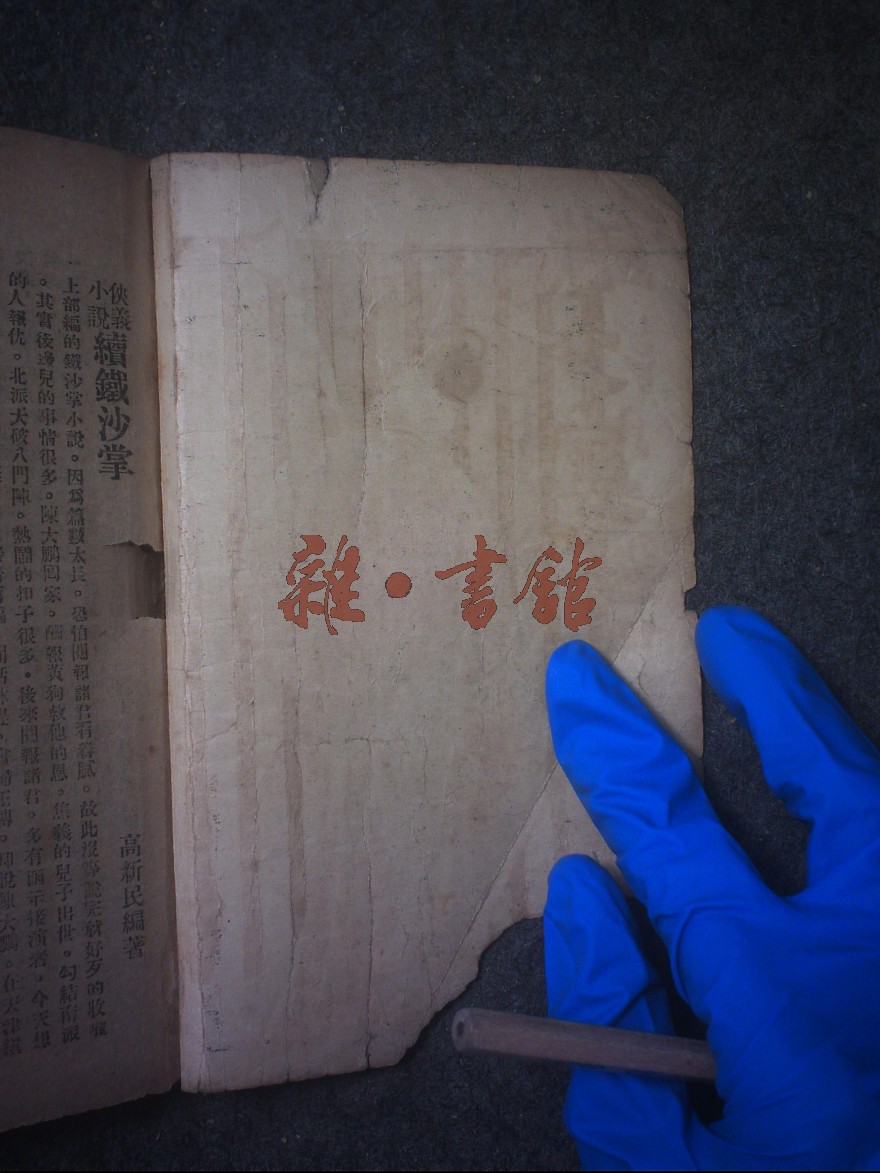 俠義
小說
續鐵沙掌
高新民編著
上部編的鐵沙掌小說。因爲篇數太長。恐怕閱報諸君看着膩。故此沒等說完就好歹的收場
。其實後邊兒的事情很多。陳大鵬回家。酬報黃狗救他的恩。焦義的兒子出世。勾結南派
的人報仇。北派大破八門陣。熱鬧的扣子很多。後來閱報諸君。多有函示後演者。今天想
雜·書館